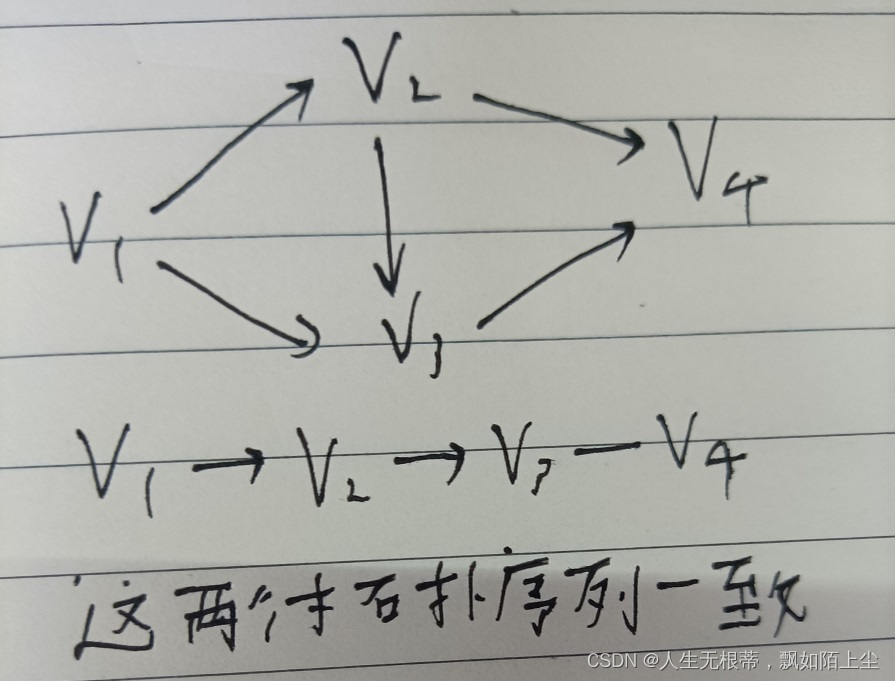 V2
V4
V1
V3
V1 → V2 → V3 — V4
这两个拓扑序列一致
CSDN @人生无根蒂，飘如陌上尘